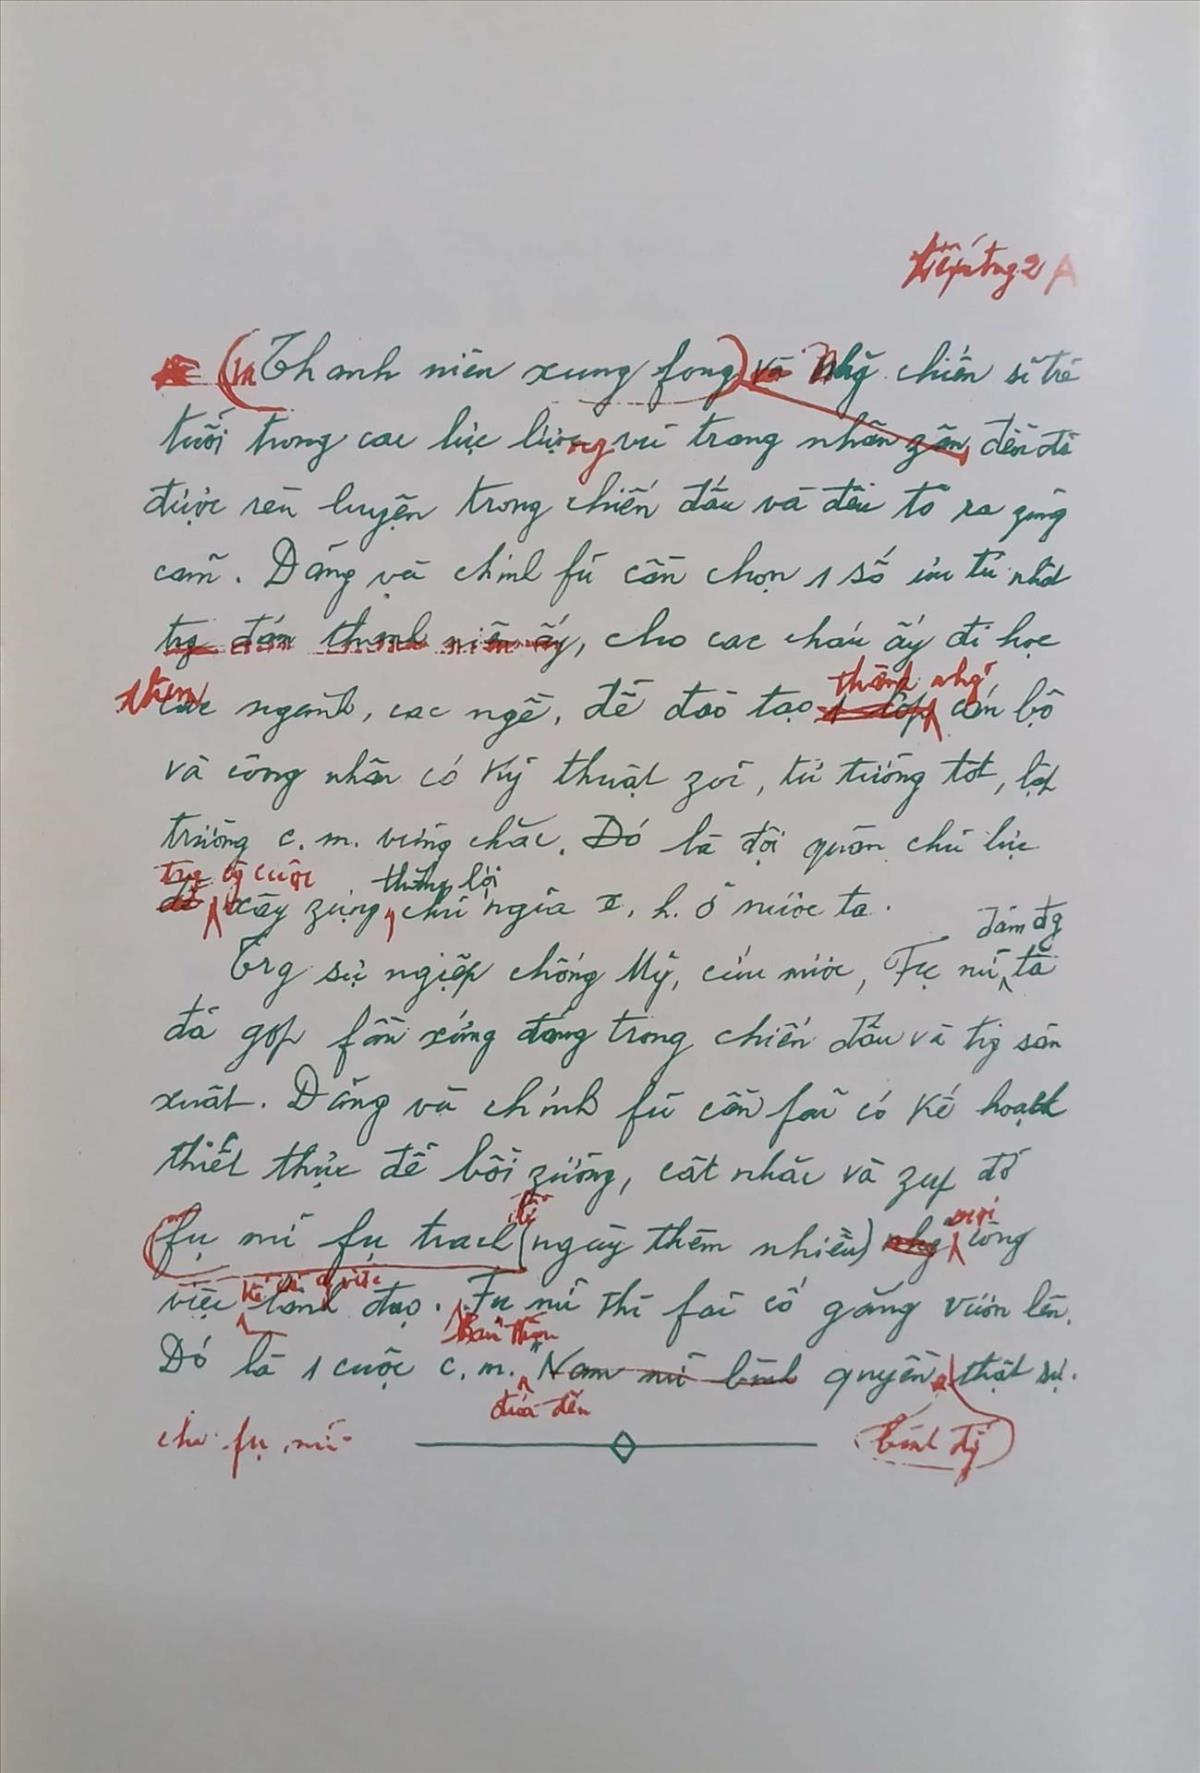 tiếp trg 2 A
(Thanh niên xung fong) và Nhg chiến sĩ trẻ
tuổi trong các lực lượng vũ trang nhân zân, đều đã
được rèn luyện trong chiến đấu và đều tỏ ra zũng
cảm. Đảng và chính fủ cần chọn 1 số ưu tú nhất
trg đám thanh niên ấy, cho các cháu ấy đi học
thêm
thành nhg
các ngành, các ngề, để đào tạo 1 lớp cán bộ
và công nhân có kỹ thuật zỏi, tư tưởng tốt, lập
trường c. m. vững chắc. Đó là đội quân chủ lực
trg cuộc thắng lợi
để xây zựng chủ ngĩa x. h. ở nước ta.
đảm đg
Trg sự ngiệp chống Mỹ, cứu nước, Fụ nữ ta
đã góp fần xứng đáng trong chiến đấu và trg sản
xuất. Đảng và chính fủ cần fải có kế hoạch
thiết thực để bồi zưỡng, cất nhắc và zúp đỡ
để mọi
fụ nữ fụ trách (ngày thêm nhiều) nhg công
việc kể cả lãnh đạo. Fụ nữ thì fải cố gắng vươn lên.
Bản thân
Đó là 1 cuộc c. m. "Nam nữ bình quyền" thật sự.
đưa đến
cho fụ nữ
bình đg